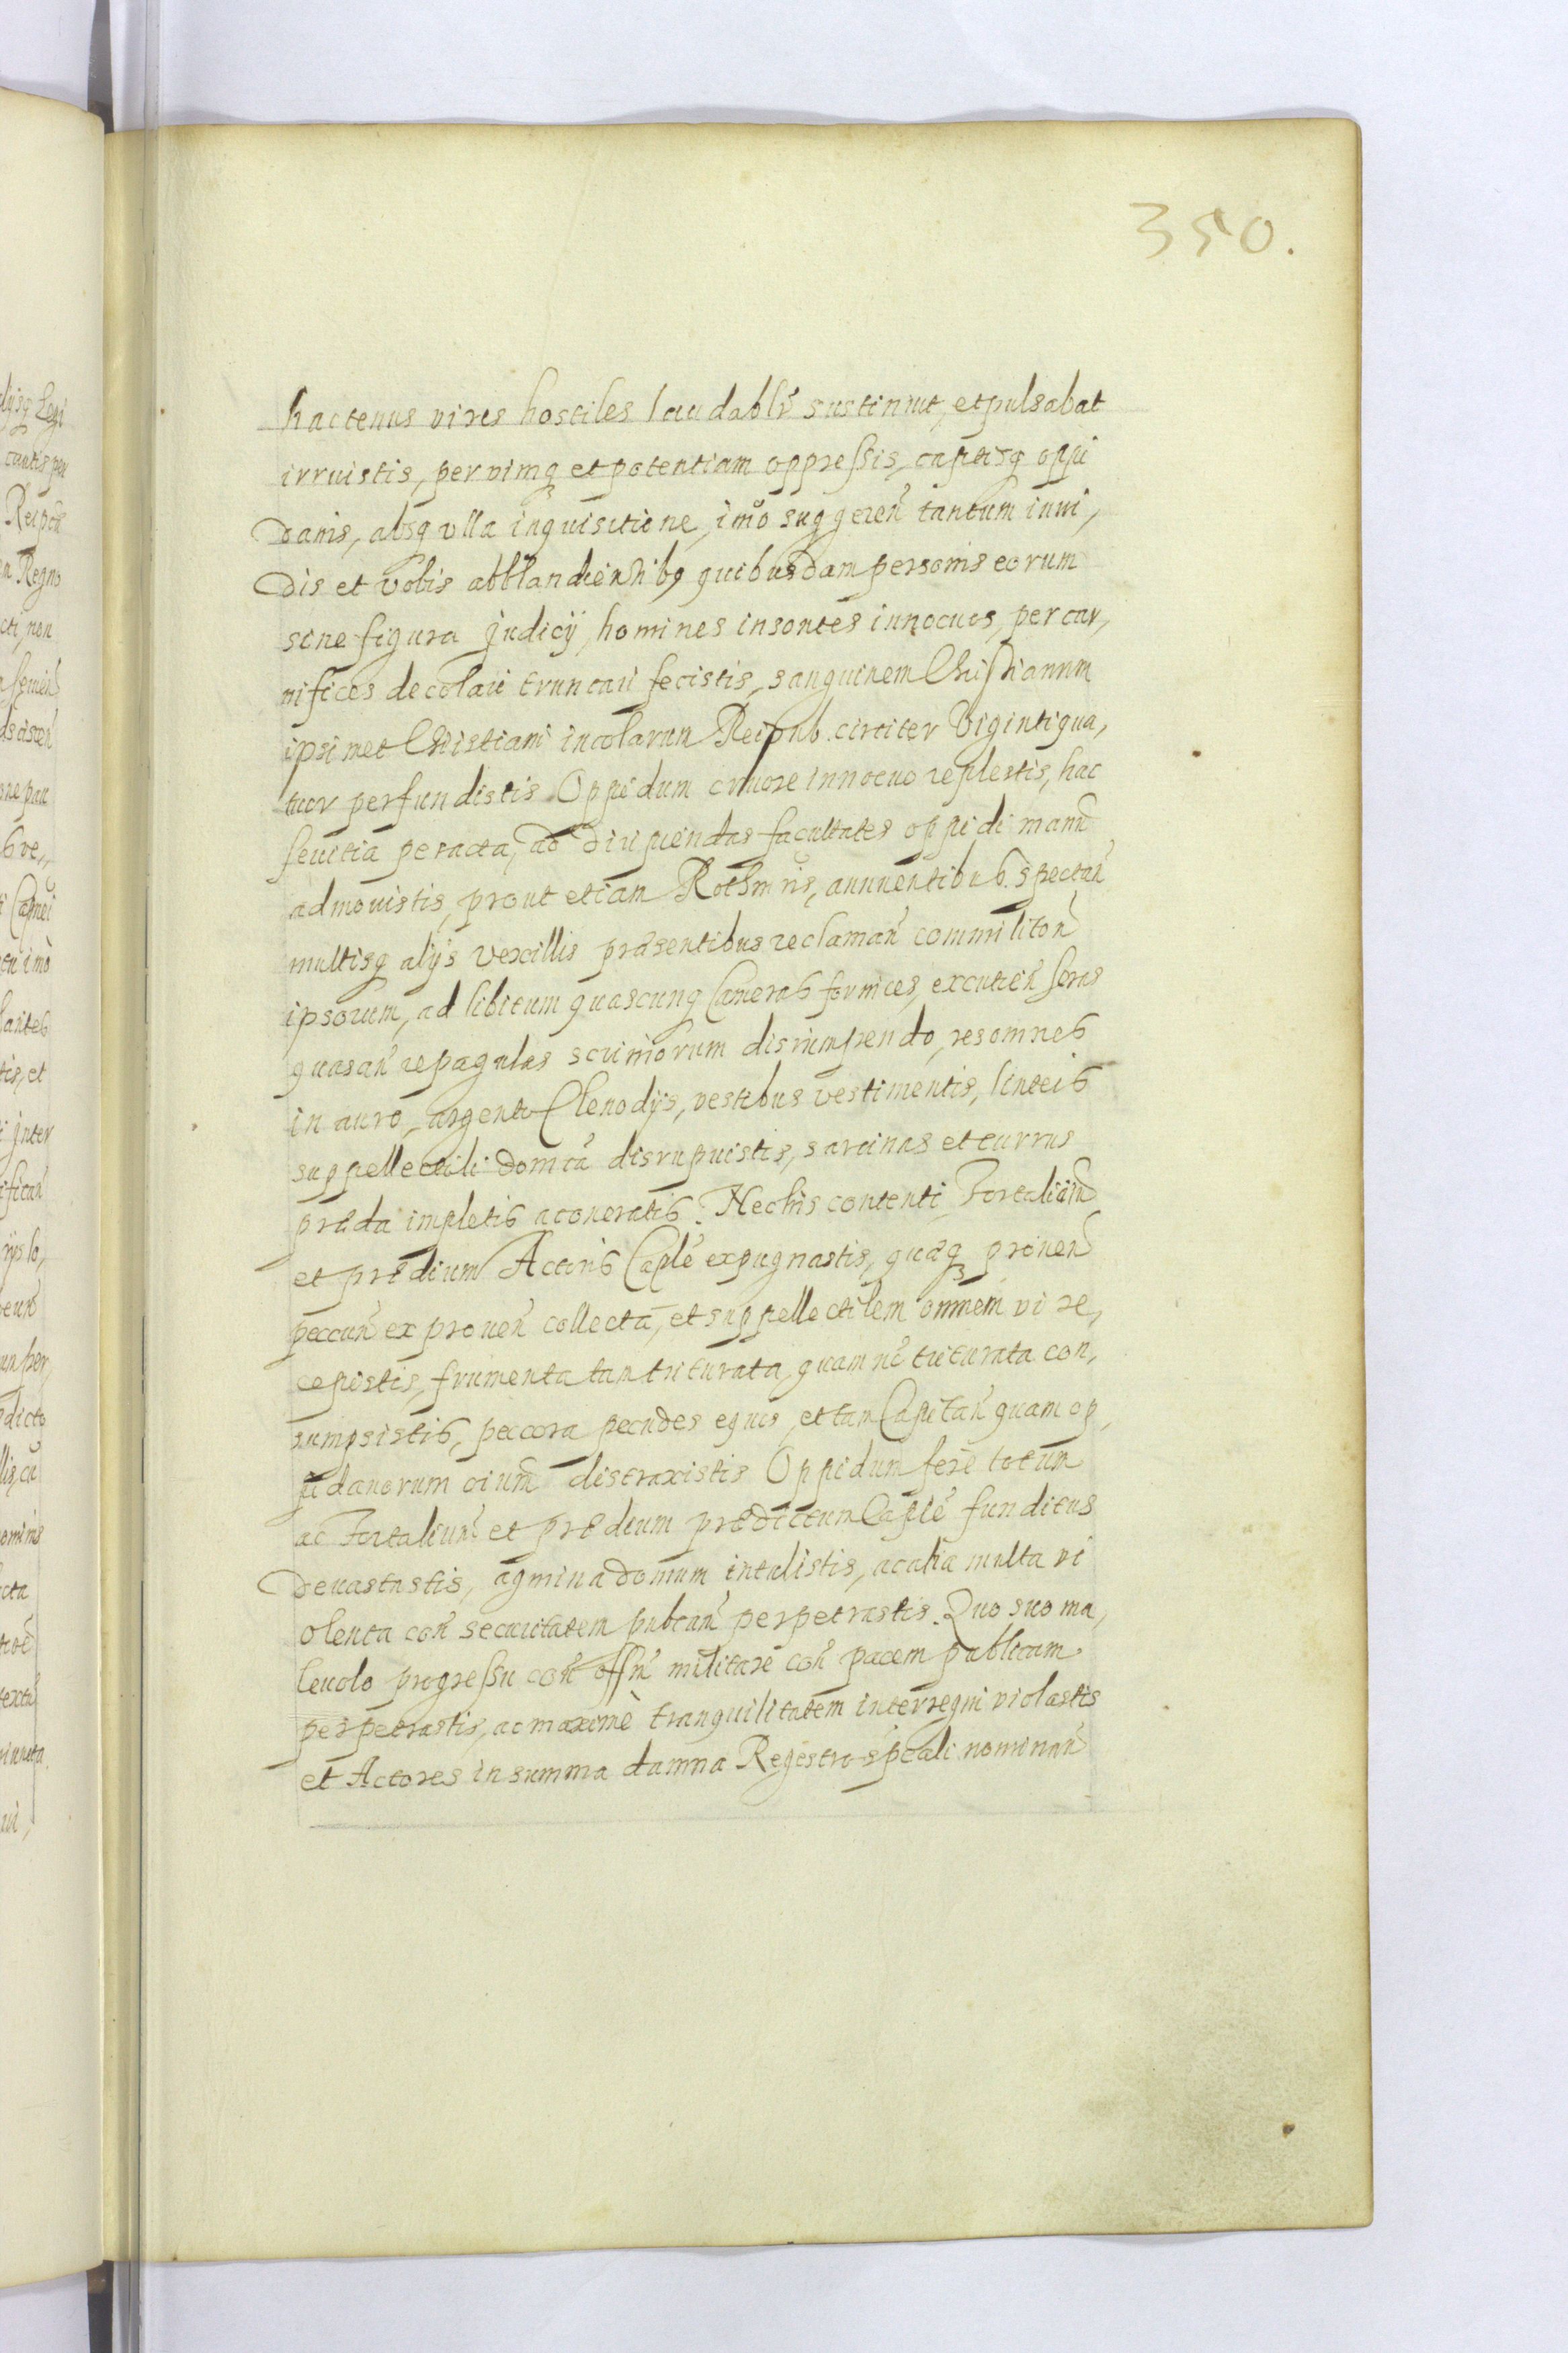 350.
hactenus vires hostiles laudablr̃ sustinuit, et pulsabat
irruistis, per vimq̨ et potentiam oppressis, captisq̨ oppi
danis, absq̨ vlla inquisitione, imò suggeren̄ tantum inui,
dis et vobis abblandientibq̨ quibusdam personis eorum
sine figura Judicij, homines insontes innocuos, per car,
nifices decolari truncari fecistis, sanguinem Christianum
ipsimet Christiani incolarum Reipub. circiter Viginti qua,
tuor perfundistis Oppidum cruore innocuo replestis, hac
seuitia peracta, ad diripiendas facultates oppidi manū
admouistis, prout etiam Rothmris, annuentibus spectan̄
multisq̨ alijs vexillis præsentibus reclaman̄ commiliton̄
ipsorum, ad libitum quascunq̨ Cameras fornices, excutien̄ seras
quasan̄ repagulas scriniorum disrumpendo, res omnes
in auro, argento Clenodijs, vestibus vestimentis, linteis
suppellectili domca disrupuistis, sarcinas et currus
præda impletis aconeratis. Nec his contenti, Fortalicin̄
et prædium Actoris Caplē expugnastis, quæq̨ prouen̄
peccun̄ ex prouen̄ collecta, et suppellectilem omnem vi re,
cepistis, frumenta tan triturata, quam nē triturata con,
sumpsistis, peccora pecudes equos, et tan Capitan̄ quam op,
pidanorum oium̄ distraxistis Oppidum ferè totum
ac Fortalium̄ et prædium prædictum Caplē funditus
deuastastis, agmina domum intulistis, ac alia multa vi
olenta con̄ securitatem pubcam̄ perpetrastis. Quo suo ma,
leuolo progressu con̄ offn̄ militare con̄ pacem publicam
perpetrastis, ac maximè tranquilitatem interregni violastis
et Actores in summa damna Regestro spcali nominan̄